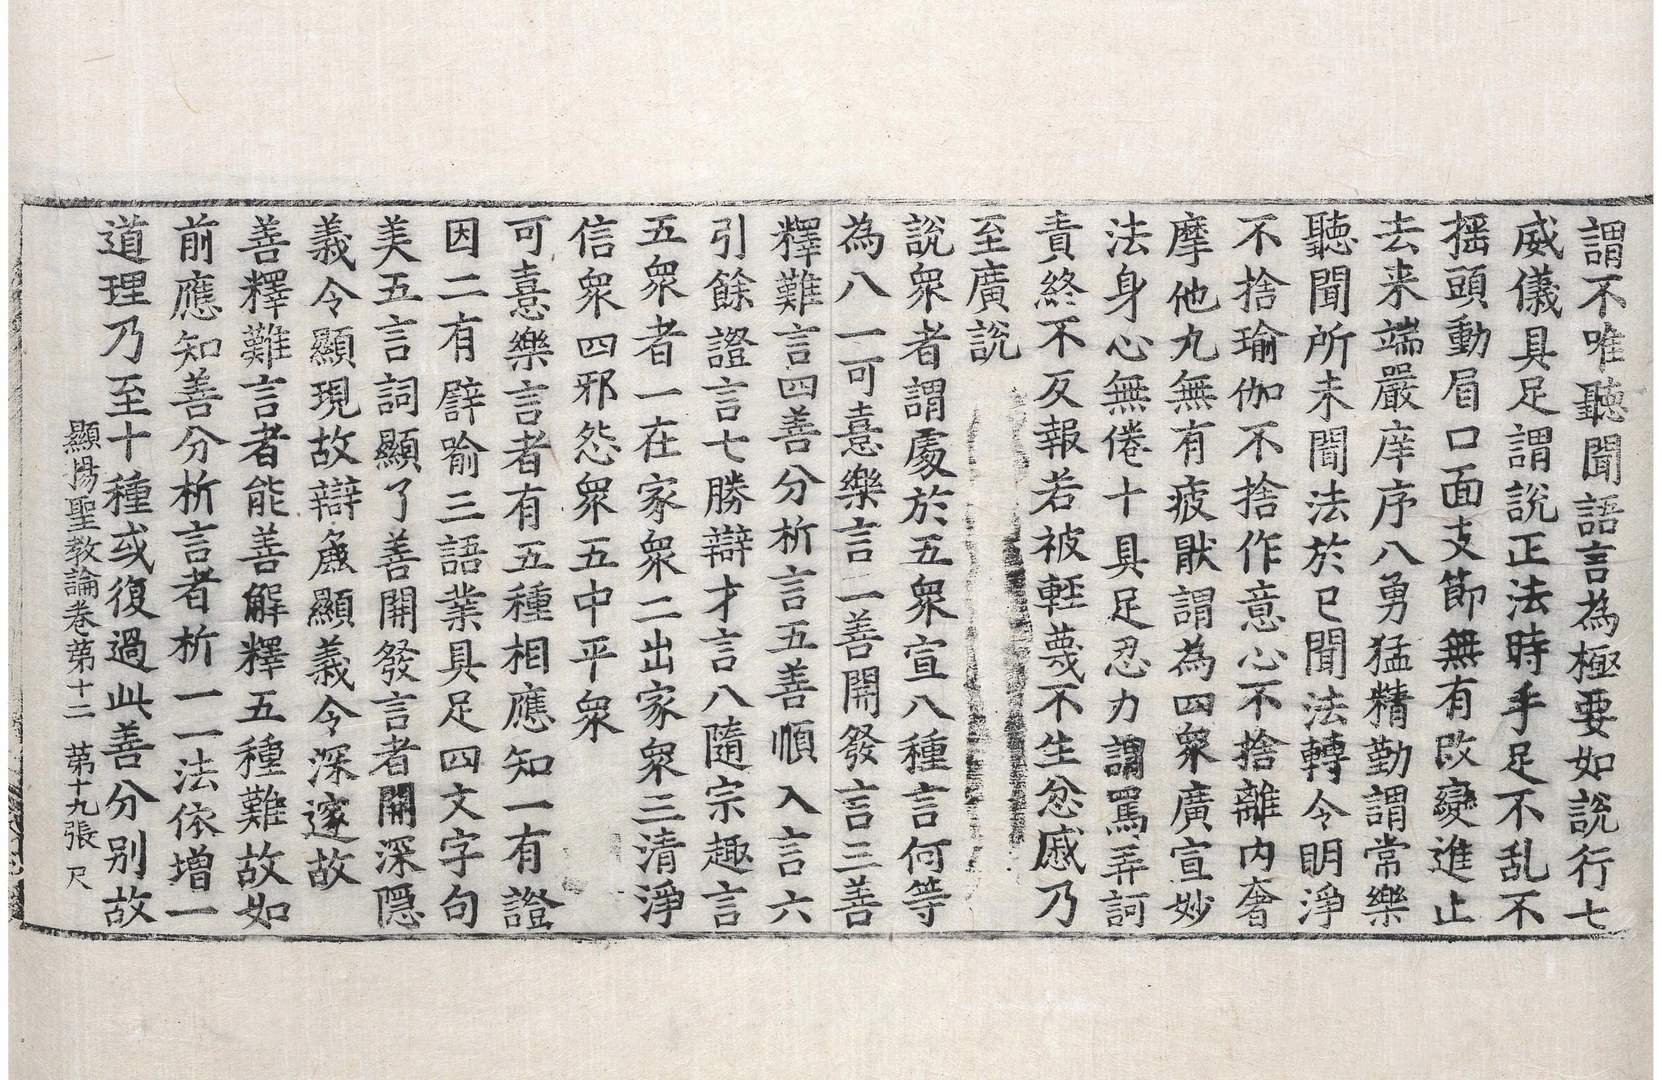 謂不唯聽聞語言為極要如說行七
威儀具足謂說正法時手足不乱不
摇頭動眉口面支節無有改變進止
去来端嚴庠序八勇猛精勤謂常樂
聽聞所未聞法於已聞法轉令明淨
不捨瑜伽不捨作意心不捨離內奢
摩他九無有疲猒謂為四衆廣宣妙
法身心無倦十具足忍力謂罵弄訶
責終不反報若被輕蔑不生忿慼乃
至廣說
說衆者謂處於五衆宣八種言何等
為八一可憙樂言二善開發言三善
釋難言四善分析言五善順入言六
引餘證言七勝辯才言八隨宗趣言
五衆者一在家衆二出家衆三清淨
信衆四邪怨衆五中平衆
可憙樂言者有五種相應知一有證
因二有譬喻三語業具足四文字句
美五言詞顯了善開發言者開深隱
義令顯現故辯麁顯義令深邃故
善釋難言者能善解釋五種難故如
前應知善分析言者析一一法依增一
道理乃至十種或復過此善分別故
顯揚聖教論卷第十二 第十九張 尺